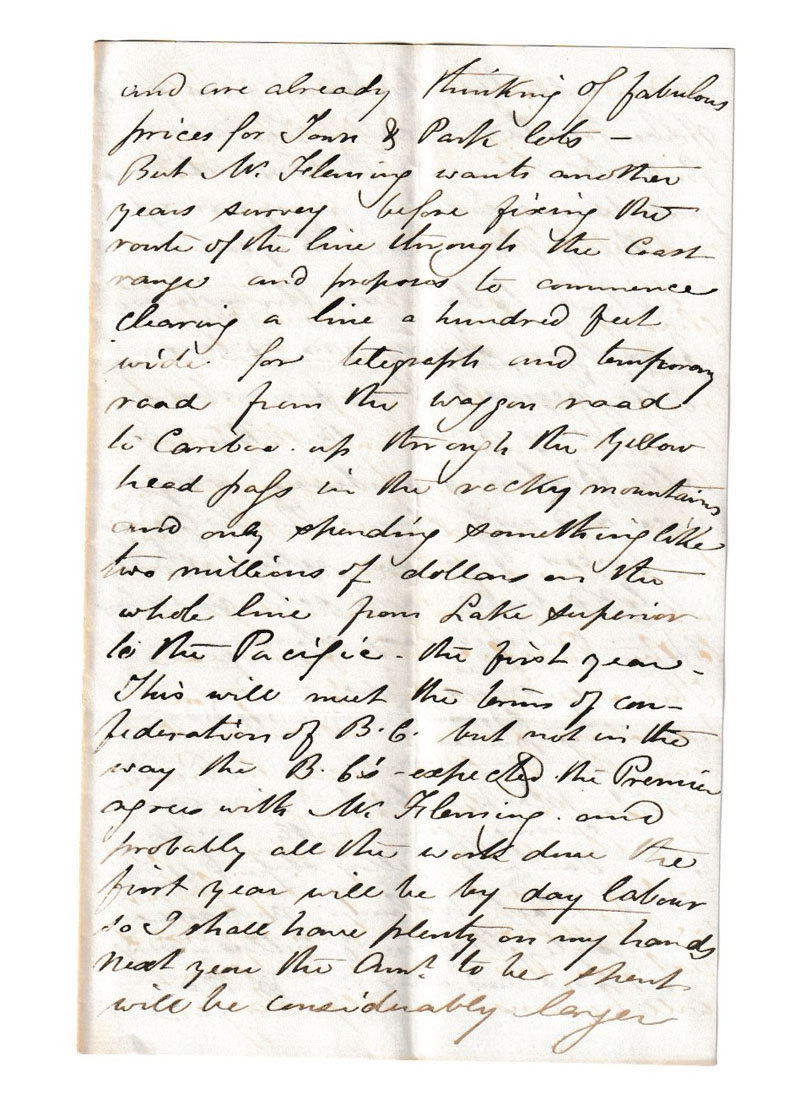 and are already thinking of fabulous
prices for Town & Park lots –
But Mr. Fleming wants another
years survey before fixing the
route of the line through the Coast
range and proposes to commence
clearing a line a hundred feet
wide for telegraph and temporary
road from the waggon road
to Cariboo. up through the Yellow
head pass in the rocky mountains
and only spending something like
two millions of dollars on the
whole line from Lake Superior
to the Pacific - the first year -
This will meet the terms of con-
federation of B.C. but not in the
way the B.C's - expected the Premier
agrees with Mr. Fleming. and
probably all the work done the
first year will be by day labour
so I shall have plenty on my hands
Next year the Amt. to be spent
will be considerably larger